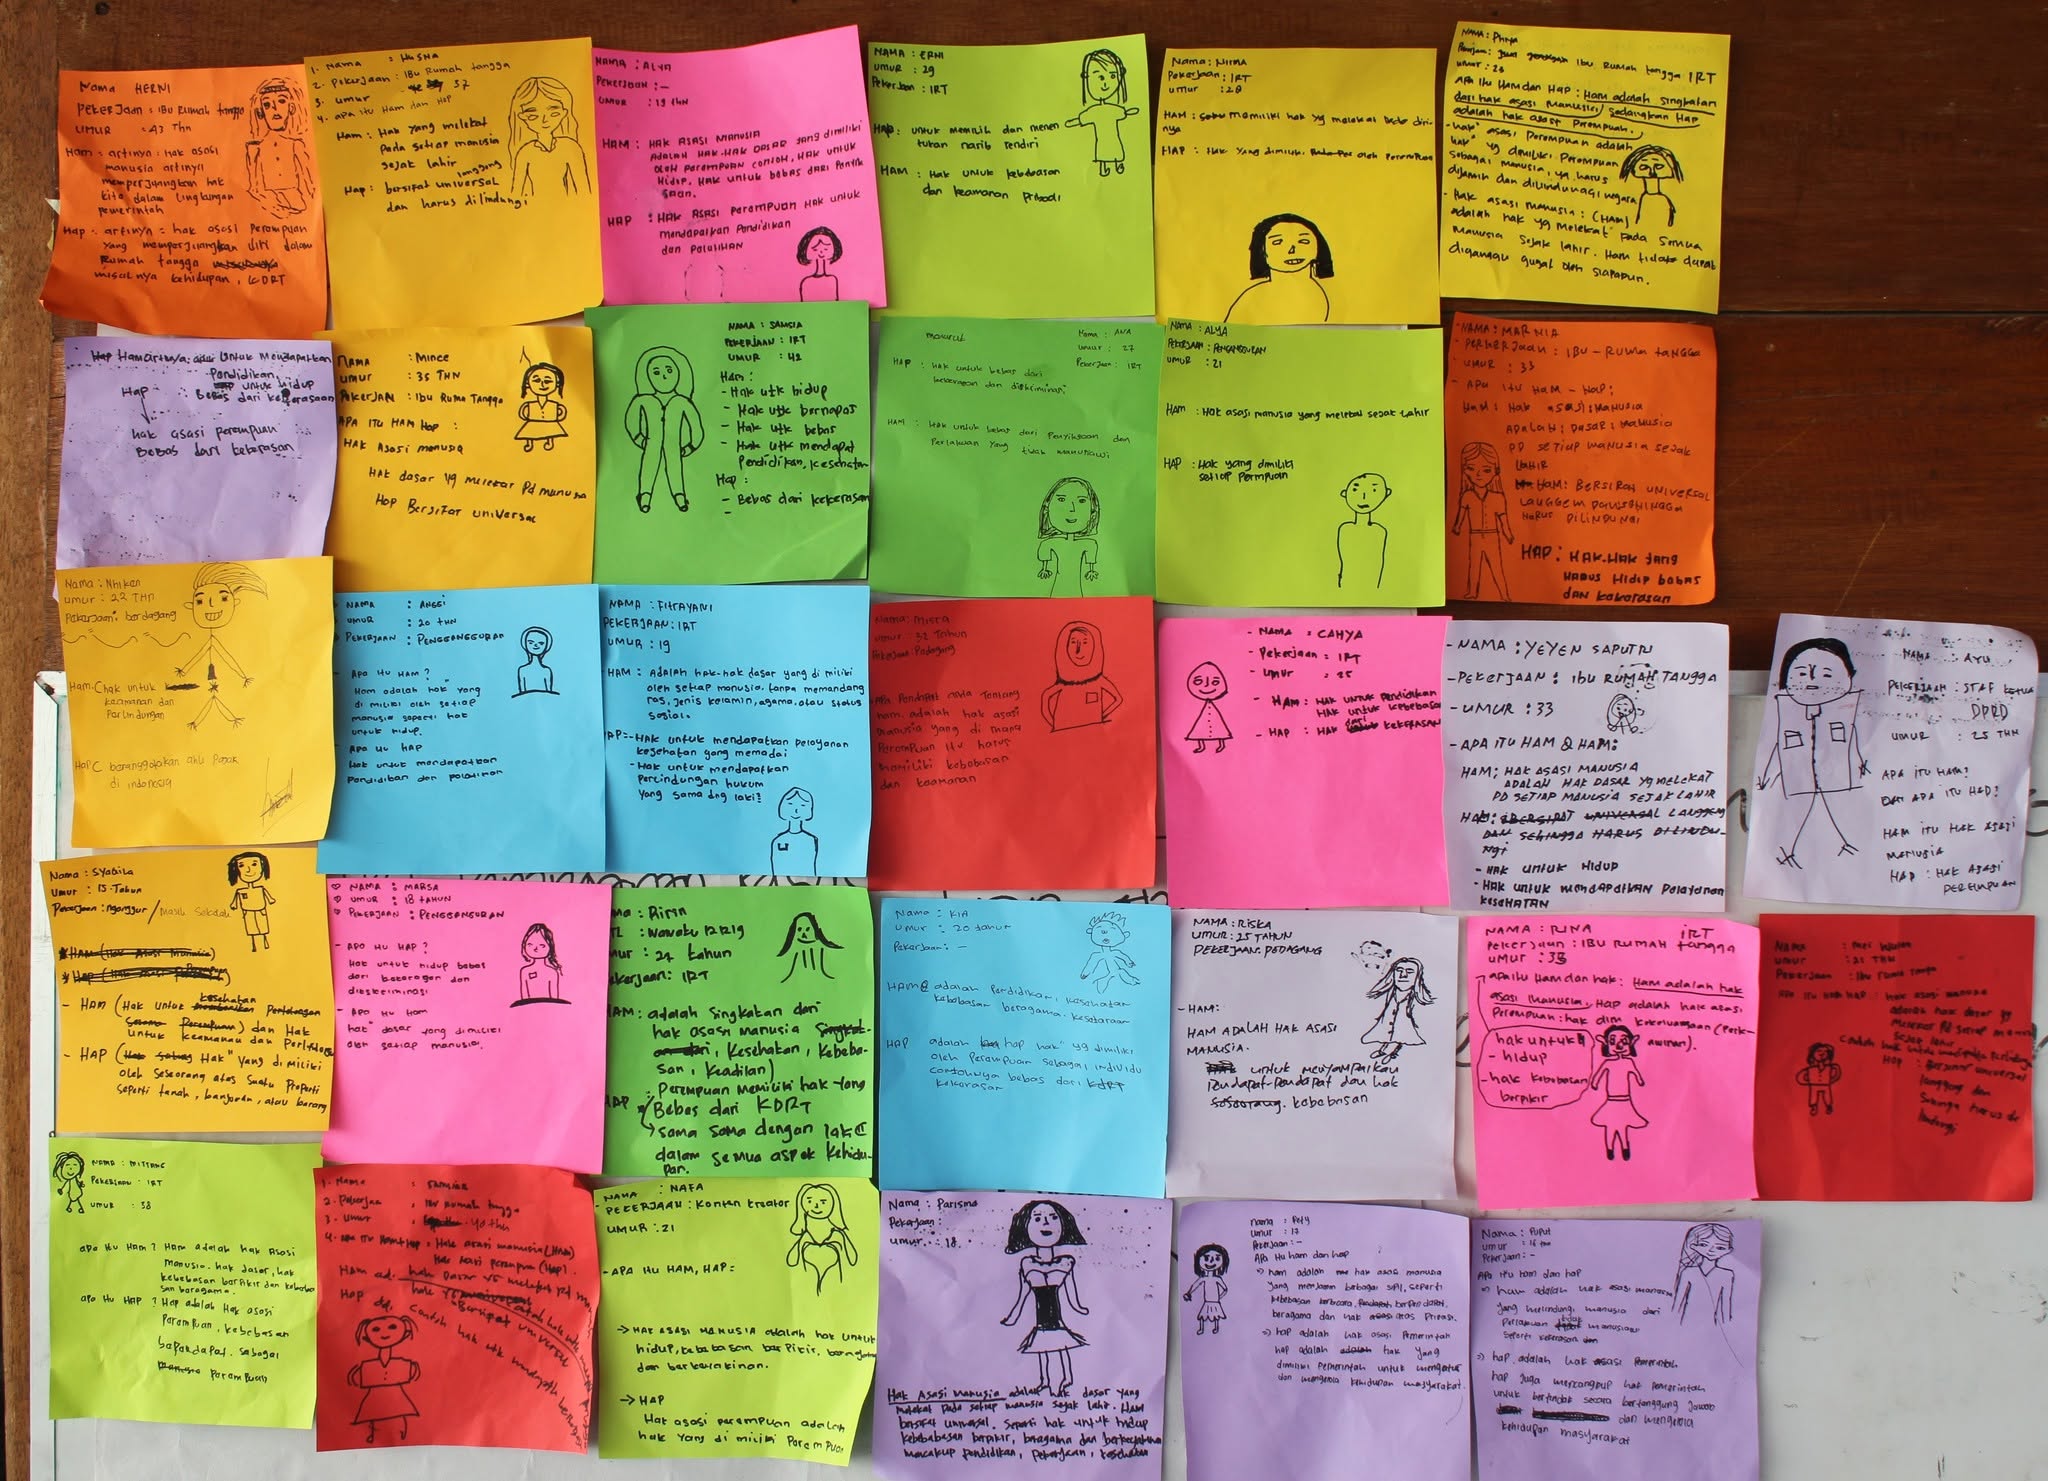 Nama HERNI
PEKERJAAN : IBU RUMAH tangga
UMUR : 43 Thn
Ham : artinya : hak asasi
manusia artinya
memperjuangkan hak
kita dalam lingkungan
pemerintah
Hap : artinya : hak asasi Perempuan
yang memperjuangkan diri dalam
Rumah tangga
misalnya kehidupan, KDRT
1. Nama : HUSNA
2. Pekerjaan : IBU Rumah tangga
3. umur 37
4. apa itu Ham dan Hap
Ham : Hak yang melekat
pada setiap manusia
sejak lahir
Hap : bersifat universal langgeng
dan harus dilindungi
NAMA : ALYA
PEKERJAAN : -
UMUR : 19 THN
HAM : HAK ASASI MANUSIA
ADALAH HAK-HAK DASAR YANG DIMILIKI
OLEH PEREMPUAN CONTOH, HAK UNTUK
HIDUP, HAK UNTUK BEBAS DARI PENYIK
SAAN.
HAP : HAK ASASI PEREMPUAN HAK UNTUK
MENDAPATKAN PENDIDIKAN
DAN PELATIHAN
NAMA : ERNI
UMUR : 29
Pekerjaan : IRT
HAP : untuk memilih dan menen
tukan nasib sendiri
HAM : Hak untuk kebebasan
dan keamanan pribadi
Nama : NIRMA
PEKERJAAN : IRT
umur : 28
HAM : memiliki hak yg melekat pada diri-
nya
HAP : Hak yang dimiliki oleh perempuan
Ibu Rumah tangga IRT
umur : 23
APA itu HAM dan HAP : Ham adalah singkatan
dari hak asasi manusia, sedangkan Hap
adalah hak asasi Perempuan.
- hak" asasi Perempuan adalah
hak" yg dimiliki Perempuan
sebagai manusia, yg harus
dijamin dan dilindungi negara
- Hak asasi manusia : (HAM)
adalah hak yg melekat pada semua
manusia sejak lahir. Ham tidak dapat
diganggu gugat oleh siapapun.
untuk mendapatkan
Pendidikan
untuk hidup
Bebas dari kekerasan
Hap
hak asasi perempuan
Bebas dari kekerasan
Nama : Mince
umur : 35 THN
PekerJAN : Ibu Ruma Tangga
APA ITU HAM HAP :
HAK Asasi manusia
HAK dasar yg melekat Pd manusia
HAP Bersifat universal
NAMA : SAMSIA
PEKERJAAN : IRT
UMUR : 42
Ham :
- Hak utk hidup
- Hak utk bernapas
- Hak utk bebas
- Hak utk mendapat
Pendidikan, kesehatan
Hap :
- Bebas dari kekerasan
-
menurut
Nama : ANA
umur : 27
Pekerjaan : IRT
HAP : Hak untuk bebas dari
kekerasan dan diskriminasi
HAM : HAK untuk bebas dari Penyiksaan dan
Perlakuan yang tidak manusiawi
NAMA : ALYA
PEKERJAAN : PENGANGGURAN
UMUR : 21
HAM : Hak asasi manusia yang melekat sejak lahir
HAP : Hak yang dimiliki
setiap Perempuan
- NAMA : MARNIA
- PERKERJAAN : IBU-RUMA TANGGA
UMUR : 33
- APA ITU HAM - HAP :
HAM : HAK ASASI MANUSIA
ADALAH : DASAR : MANUSIA
PD SETIAP MANUSIA SEJAK
LAHIR
HAM : BERSIFAT UNIVERSAL
HARUS DILINDUNGI
HAP : HAK-HAK yang
HARUS HIDUP BEBAS
DAN KEKERASAN
Nama : Nhiken
umur : 22 THN
Pekerjaan : berdagang
Ham : (hak untuk
keamanan dan
Perlindungan
di indonesia
NAMA : ANGGI
UMUR : 20 THN
PEKERJAAN : PENGGANGGURAN
- APA ITU HAM ?
Ham adalah hak" yang
di miliki oleh setiap
manusia seperti hak
untuk hidup.
- APA ITU HAP
Hak untuk mendapatkan
Pendidikan dan pelatihan
NAMA : FITRAYANI
PEKERJAAN : IRT
UMUR : 19
HAM : ADALAH hak-hak dasar yang di miliki
oleh setiap manusia. tanpa memandang
ras, jenis kelamin, agama, atau status
sosial.
HAP : - HAK untuk mendapatkan pelayanan
kesehatan yang memadai
- Hak untuk mendapatkan
Perlindungan hukum
yang sama dng laki²
Nama : Misra
umur 32 Tahun
Pekerjaan : Pedagang
Apa Pendapat anda Tentang
ham. adalah hak asasi
manusia yang di mana
Perempuan itu harus
memiliki kebebasan
dan keamanan
- NAMA : CAHYA
- Pekerjaan : IRT
- Umur : 25
- HAM : HAK UNTUK PENDIDIKAN
HAK UNTUK KEBEBASAN
- HAP : HAK dari KEKERASAN
- NAMA : YEYEN SAPUTRI
- PEKERJAAN : IBU RUMAH TANGGA
- UMUR : 33
- APA ITU HAM & HAM :
HAM ; HAK ASASI MANUSIA
ADALAH HAK DASAR YG MELEKAT
PD SETIAP MANUSIA SEJAK LAHIR
HAM : BERSIFAT UNIVERSAL LANGGENG
DAN SEHINGGA HARUS DILINDU-
NGI
- HAK UNTUK HIDUP
- HAK UNTUK MENDAPATKAN PELAYANAN
KESEHATAN
NAMA : AYU
PEKERJAAN : STAF KETUA
DPRD
UMUR : 25 THN
APA ITU HAM?
DAN APA ITU HAP?
HAM ITU HAK ASASI
MANUSIA
HAP : HAK ASASI
PEREMPUAN
Nama : SYABILA
Umur : 15 Tahun
Pekerjaan : nganggur / Masih Sekolah
HAM (Hak Asasi Manusia)
- HAM (Hak untuk kesehatan
Perempuan) dan Hak
untuk keamanan dan
- HAP ( Hak" yang di miliki
oleh seseorang atas suatu properti
seperti tanah, bangunan, atau barang
NAMA : MARSA
UMUR : 18 TAHUN
PEKERJAAN : PENGGANGGURAN
- APA ITU HAP ?
Hak untuk hidup bebas
dari kekerasan dan
diskriminasi
- APA ITU HAM
hak" dasar yang dimiliki
oleh setiap manusia.
Nama : Ririn
Umur : 27 tahun
Pekerjaan : IRT
HAM : adalah singkatan dari
hak asasi manusia
Kesehatan, Kebeba-
san, Keadilan)
Perempuan Memiliki hak yang
HAP Bebas dari KDRT
sama sama dengan laki²
dalam semua aspek kehidu-
pan.
Nama : KIA
Umur : 20 tahun
Pekerjaan : -
HAM adalah Perdidikan, kesehatan
kebebasan beragama. kesetaraan
HAP adalah hap hak" yg dimiliki
oleh Perempuan sebagai individu
contohnya bebas dari KDRT
kekerasan
NAMA : RISKA
UMUR : 25 TAHUN
PEKERJAAN : PEDAGANG
- HAM :
HAM ADALAH HAK ASASI
MANUSIA.
untuk menyampaikan
Pendapat-Pendapat dan hak
seseorang. kebebasan
NAMA : RINA IRT
Pekerjaan : IBU RUMAH tangga
UMUR : 35
apa itu Ham dan hak : Ham adalah hak
asasi manusia, HAP adalah hak asasi
Perempuan : hak dlm
hak untuk
- hidup
- hak kebebasan
berpikir
Nama
umur : 21 THN
Pekerjaan : Ibu ruma
hak asasi manusia
adalah hak dasar yg
sejak lahir
HAP : Bersifat universal
langgeng dan
NAMA : MITTANG
PEKERJAAN : IRT
UMUR : 38
apa itu HAM ? HAM adalah HAK ASASI
manusia. hak dasar, hak
kebebasan berpikir dan kebeba
san beragama.
apa itu HAP ? Hap adalah Hak asasi
Perempuan, kebebasan
berpendapat. sebagai
Perempuan
1. Nama : SAMSIAR
2. Pekerjaan : Ibu Rumah tangga
3. Umur : 40 thn
4. apa itu Ham Hap : Hak asasi manusia (HAM)
Hak asasi perempuan (Hap)
NAMA : NAFA
- PEKERJAAN : Konten kreator
UMUR : 21
- APA ITU HAM, HAP =
→ HAK ASASI MANUSIA adalah hak untuk
hidup, kebebasan berpikir, beragama
dan berkeyakinan.
→ HAP
Hak asasi perempuan adalah
hak yang di miliki Perempuan
Nama : Parisma
Pekerjaan :
umur : 18
HAK ASASI manusia adalah hak dasar yang
melekat pada setiap manusia sejak lahir. Ham
bersifat universal, seperti hak untuk hidup
kebebasan berpikir, beragama dan berkeyakinan
mencakup pendidikan, pekerjaan, kesehatan
Umur : 17
Pekerjaan : -
Apa itu ham dan hap
→ ham adalah hak asasi manusia
yang menjamin berbagai sipil, seperti
kebebasan berbicara, berpendapat,
beragama dan hak atas privasi.
→ hap adalah hak asasi Pemerintah
hap adalah hak yang
dimiliki Pemerintah untuk mengatur
dan mengelola kehidupan masyarakat.
Nama : Puput
umur : 16 thn
Pekerjaan : -
Apa itu ham dan hap
→ ham adalah hak asasi manusia
yang melindungi manusia dari
Perlakuan tidak manusiawi
seperti kekerasan
→ hap adalah hak asasi Pemerintah
hap juga mencangkup hak Pemerintah
untuk bertindak secara bertanggung jawab
dan mengelola
kehidupan masyarakat